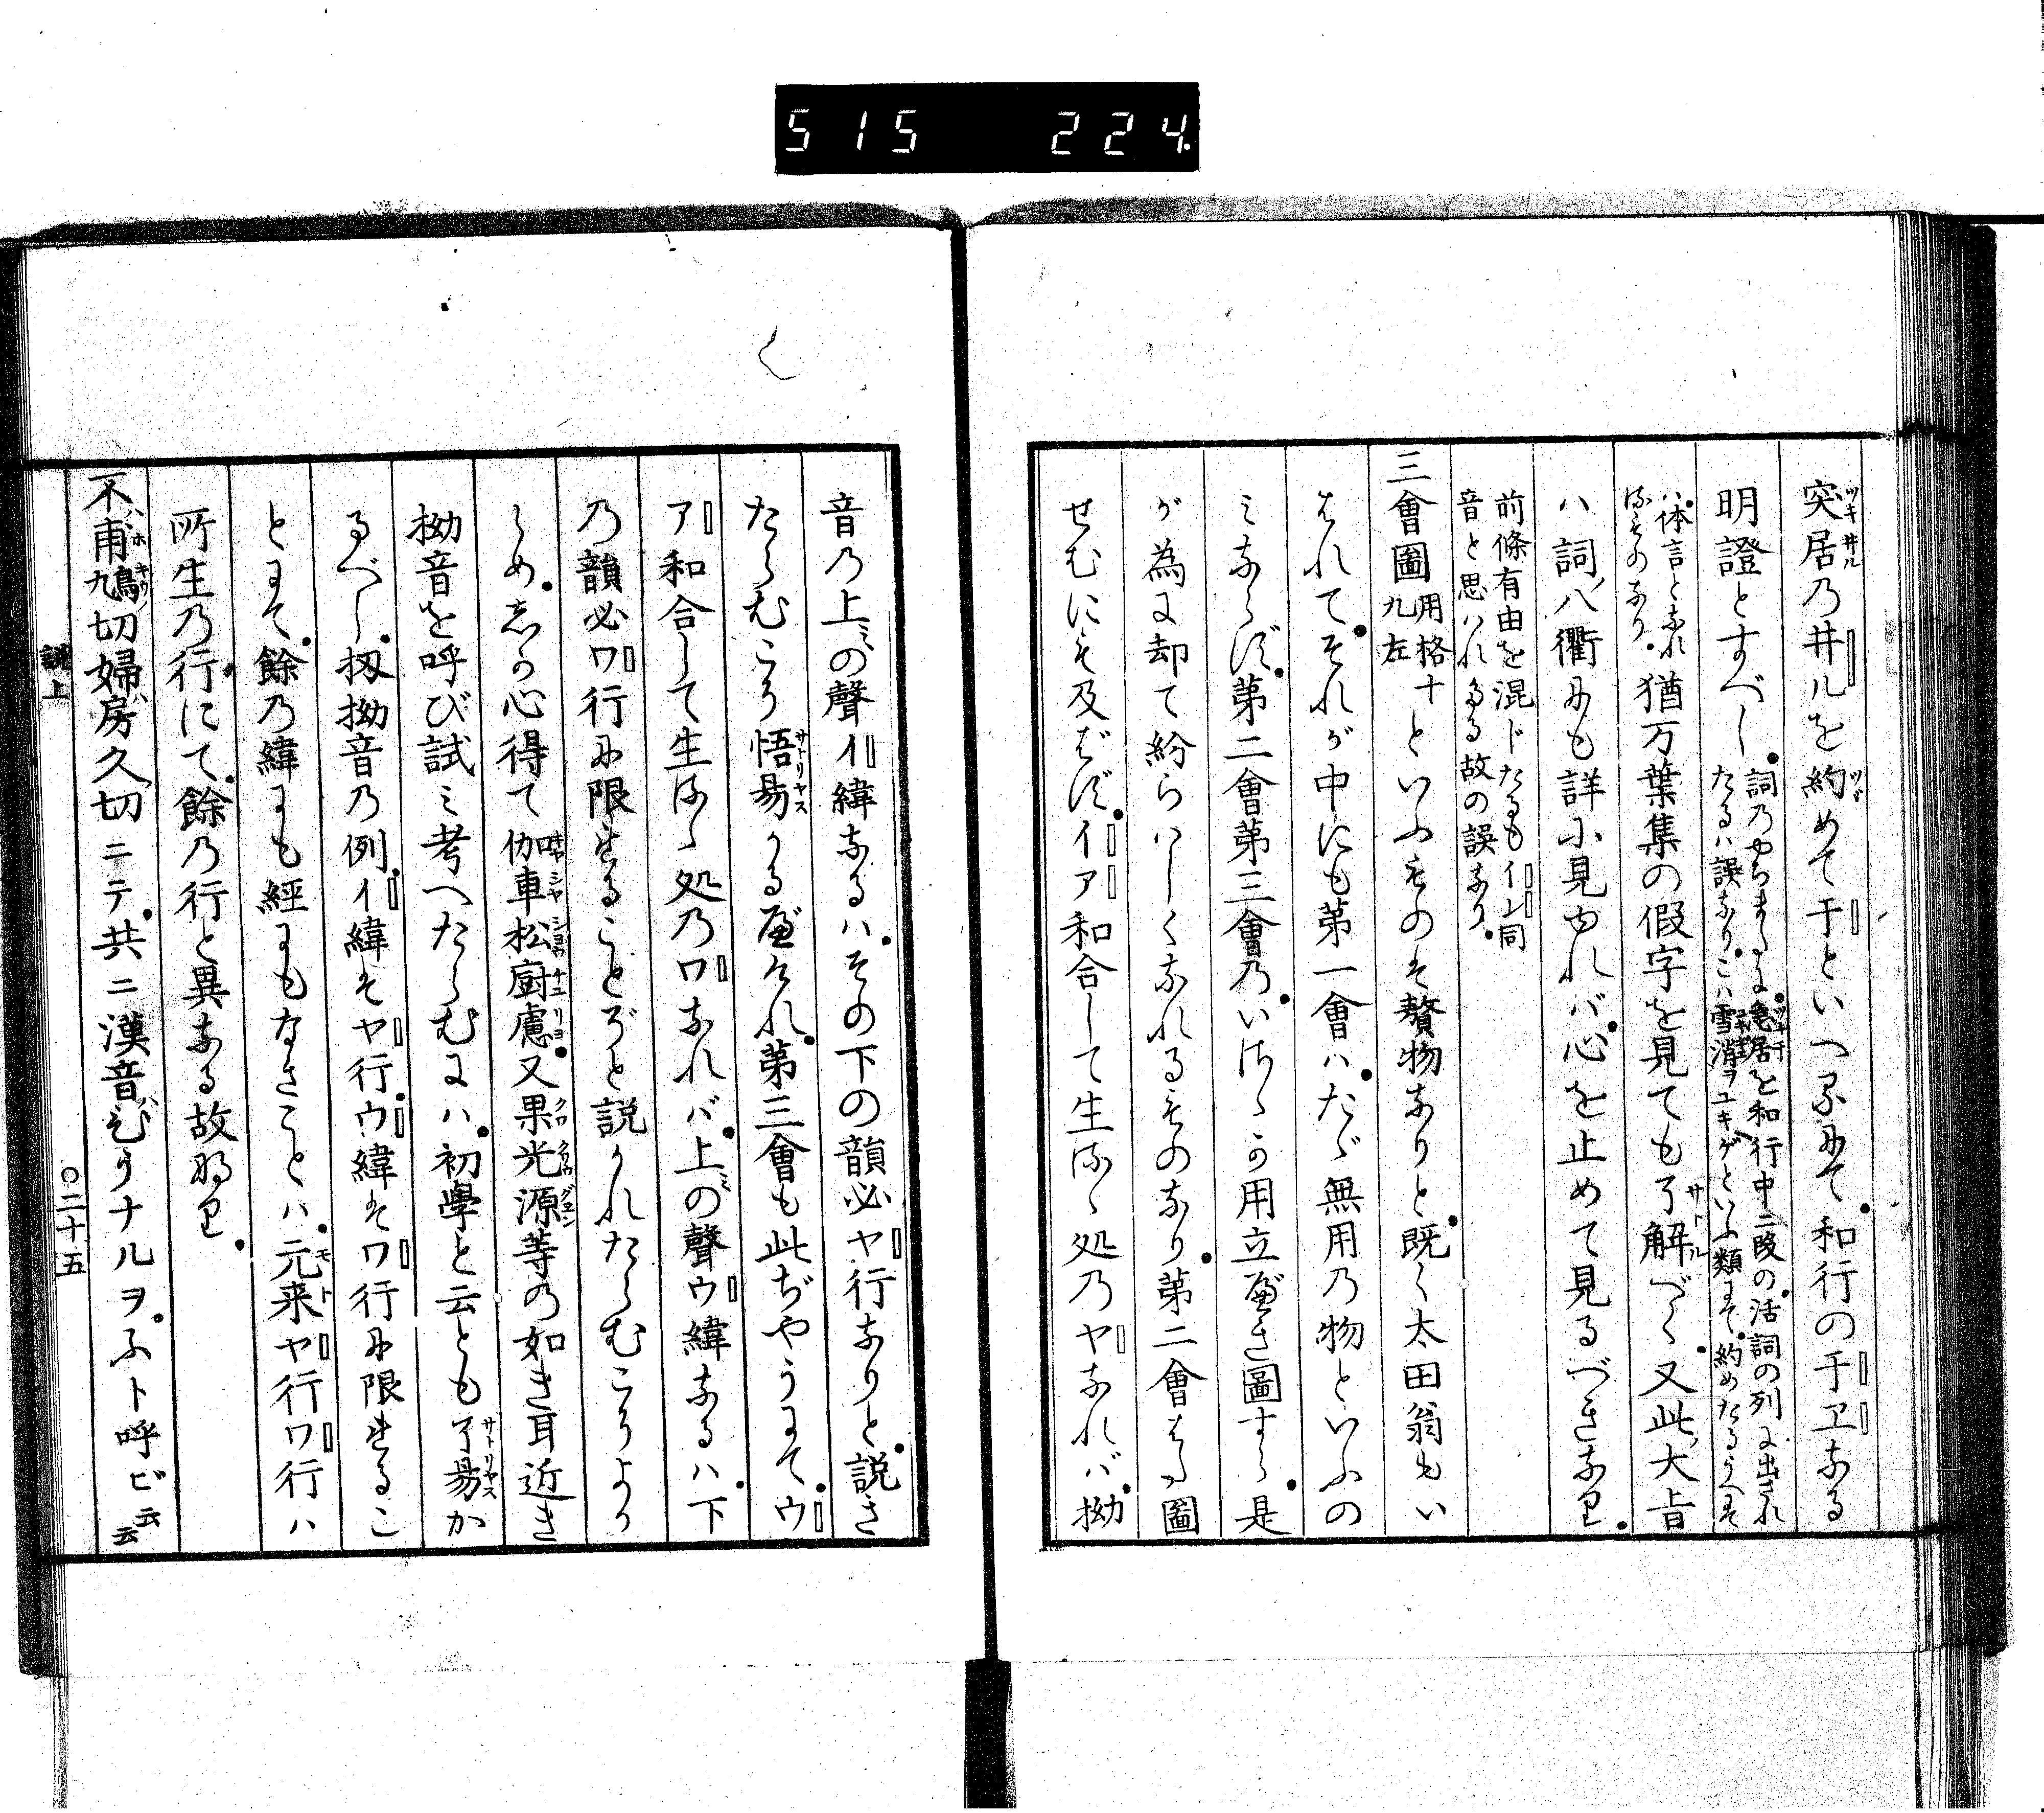 515 224.
突居乃井ルを約めて于といへるにて和行の于ヱなる
明證とすべし詞乃やちまたに急居を和行中二段の活詞の列に出され
たるハ誤なりこハ雪消ヲユキゲといふ類にて約めたるうへにそ
ハ体言となれ
るものなり猶万葉集の假字を見ても了解べく又此大旨
ハ詞ノ八衢にも詳に見ゆれバ心を止めて見るべきなり
前條有由を混ドたるもイヰ同
音と思ハれたる故の誤なり
三會圖用格十九左といふものそ贅物なりと既く太田翁もい
はれてそれが中にも第一會ハたゞ無用乃物といふの
ミならず第二會第三會乃いさゝか用立べき圖すら是
が為に却て紛らハしくなれるものなり第二會はた圖
せむにも及ばずイア和合して生るゝ処乃ヤなれバ拗
音乃上の聲イ緯なるハその下の韻必ヤ行なりと説き
たらむこそ悟易かるべけれ第三會も此ぢやうにてウ
ア和合して生るゝ処乃ワなれバ上の聲ウ緯なるハ下
乃韻必ワ行に限れることぞと説かれたらむこそよか
らめしか心得て伽車松廚慮又果光源等の如き耳近き
拗音を呼び試ミ考へたらむにハ初學と云とも了易か
るべし扨拗音乃例イ緯そヤ行ウ緯そワ行に限れるこ
とにて餘乃緯にも經にもなきことハ元来ヤ行ワ行ハ
所生乃行にて餘乃行と異なる故なり
不甫鳩切九婦房久切ニテ共ニ漢音ひうナルヲふト呼ビ云云
説上
〇二十五